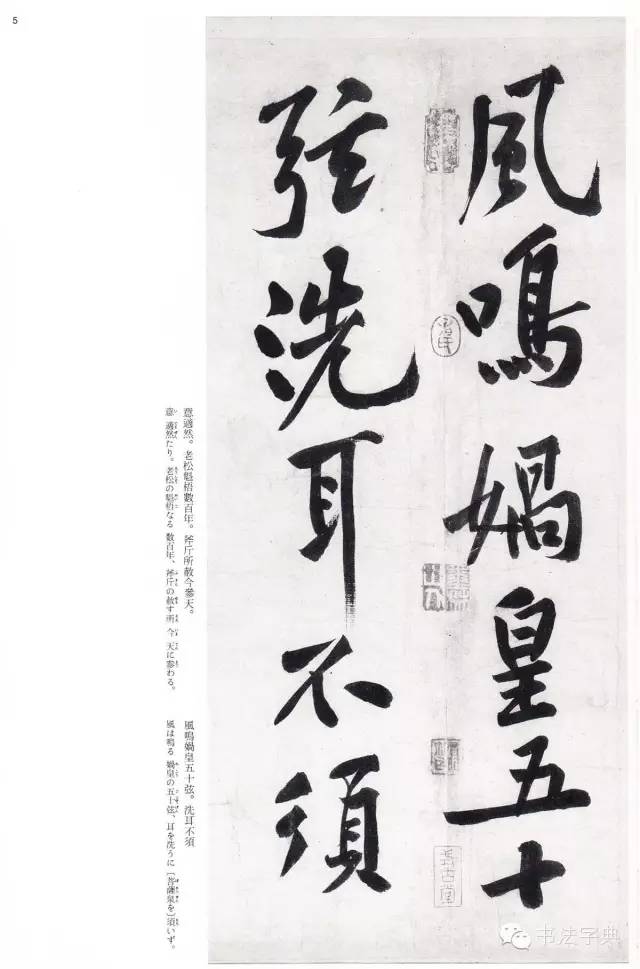 5
風鳴媧皇五十
弦洗耳不須
意適然。老松魁梧數百年。斧斤所赦今參天。
意 適然たり。老松の魁梧なる 数百年、斧斤の赦す所 今 天に参わる。
風鳴媧皇五十弦。洗耳不須
風は鳴る 媧皇の五十弦、耳を洗うに〔菩薩泉を〕須いず。
书法字典